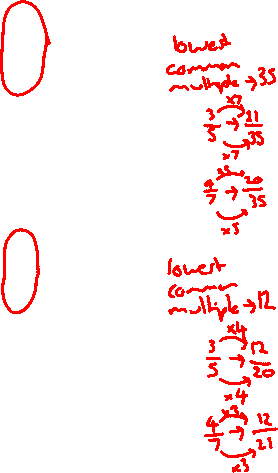 lowest
common
multiple → 35
x7
3/5 → 21/35
x7
x5
4/7 → 20/35
x5
lowest
common
multiple → 12
x4
3/5 → 12/20
x4
x3
4/7 → 12/21
x3